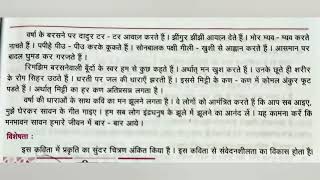 वर्षा के बरसने पर दादुर टर - टर आवाज करते हैं। झींगुर झींझी आवाज देते हैं। मोर म्यव - म्यव करते
नाचते हैं। पपीहे पीउ - पीउ करके कूकते हैं। सोनबालक पक्षी गीली - खुशी से आह्वान करते हैं। आसमान पर
बादल घुमड कर गरजते हैं।
रिमझिम बरसनेवाली बूँदों के स्वर हम से कुछ कहते हैं। अर्थात् मन खुश करते हैं। उनके छूते ही शरीर
के रोम सिहर उठते हैं। धरती पर जल की धाराएँ झरती हैं। इससे मिट्टी के कण - कण में कोमल अंकुर फूट
पडते हैं। अर्थात् मिट्टी का हर कण अतिप्रसन्न लगता है।
वर्षा की धाराओं के साथ कवि का मन झूलने लगता है। वे लोगों को आमंत्रित करते हैं कि आप सब आइए,
मुझे घेरकर सावन के गीत गाइए। हम सब लोग इंद्रधनुष के झूले में झूलने का आनंद लें। यह कामना करें कि
मनभावन सावन हमारे जीवन में बार - बार आये।
विशेषता :
इस कविता में प्रकृति का सुंदर चित्रण अंकित किया है। इस कविता से संवेदनशीलता का विकास होता है।